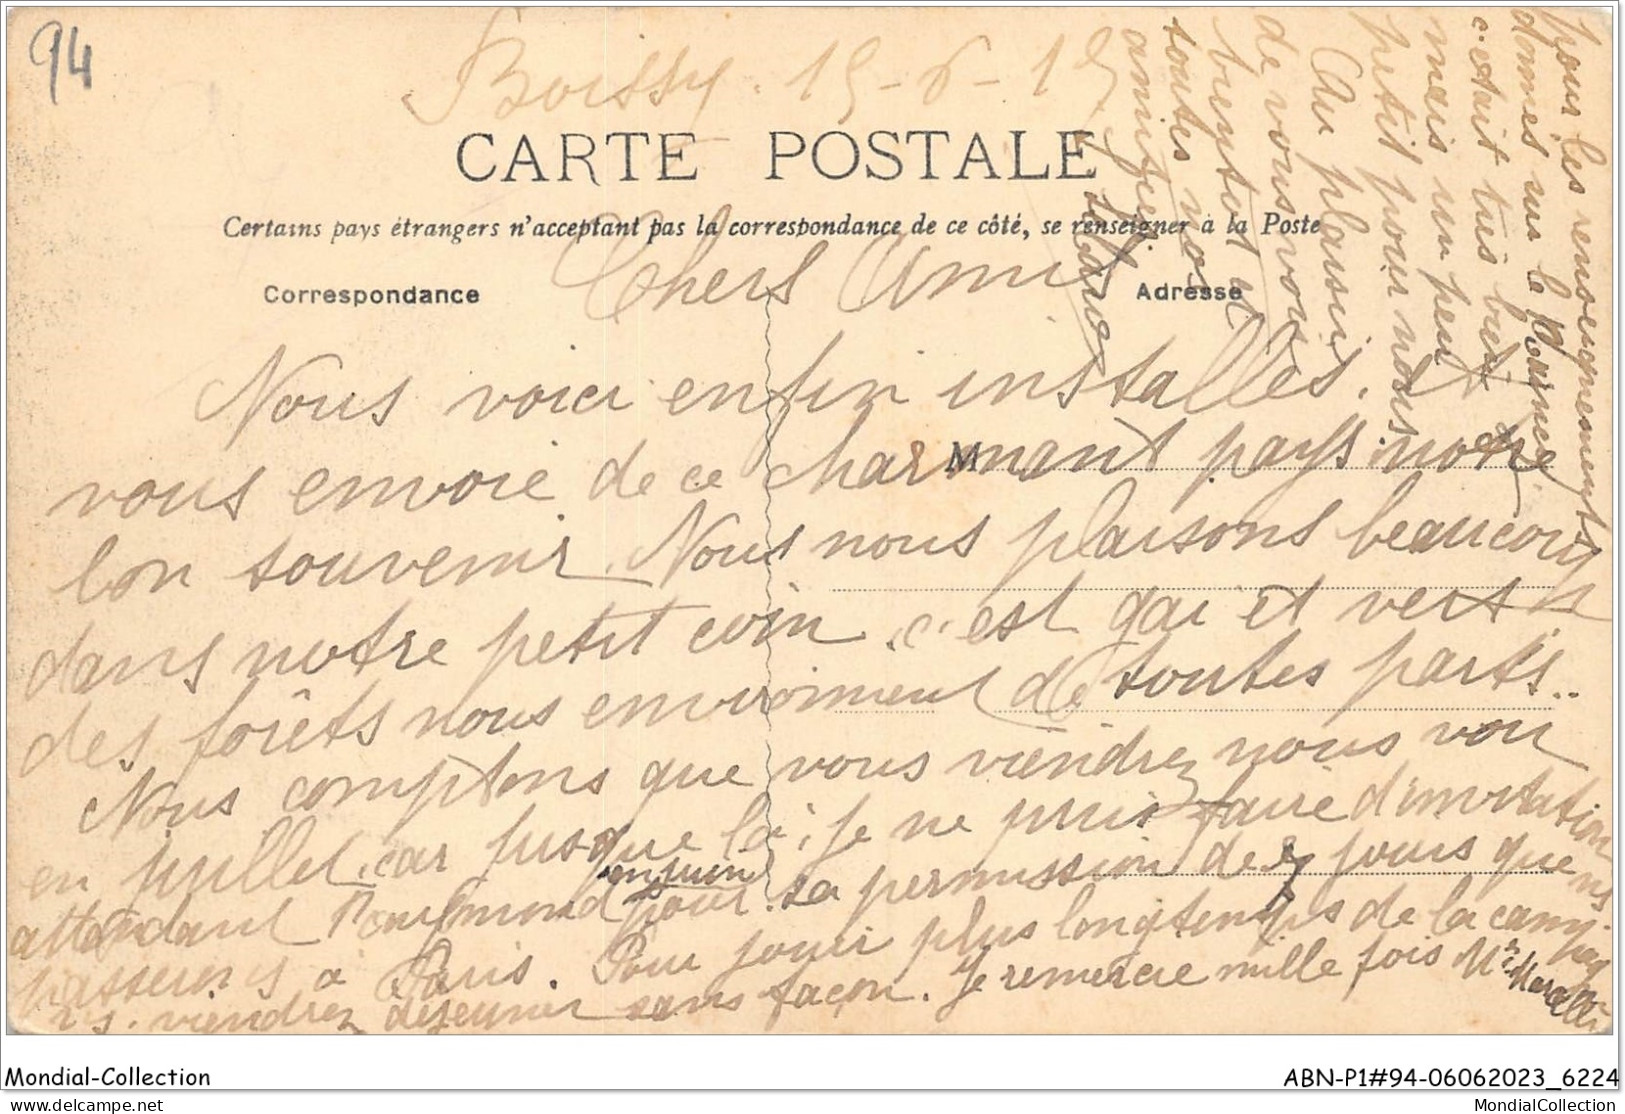 94
Boissy. 15-6-15
CARTE POSTALE
Certains pays étrangers n'acceptant pas la correspondance de ce côté, se renseigner à la Poste
Correspondance
Adresse
M
Chers Amis
Nous voici enfin installés. et
vous envoie de ce charmant pays notre
bon souvenir. Nous nous plaisons beaucoup
dans notre petit coin. c'est gai et vert
des forêts nous environnent de toutes parts..
Nous comptons que vous viendrez nous voir
en juillet. car jusque là, je ne puis faire d'invitation
attendant Raymond en juin pour sa permission de 7 jours que ns
passerons à Paris. Pour jouir plus longtemps de la campagne
vs. viendrez déjeuner sans façon. Je remercie mille fois Mr Marcelli
pour les renseignements
donnés sur le
c'était très bien
mais un peu
petit pour nous
Au plaisir
de vous voir
bientôt et
toutes nos
amitiés